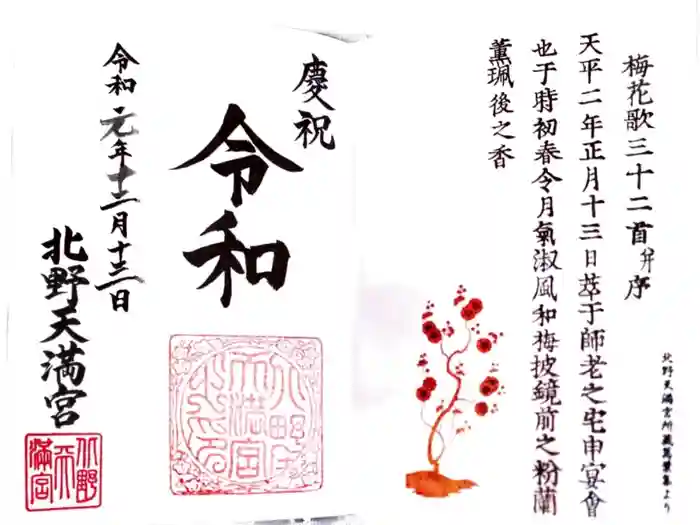 梅花歌三十二首并序
天平二年正月十三日萃于師老之宅申宴會
也于時初春令月氣淑風和梅披鏡前之粉蘭
薫珮後之香
北野天満宮所蔵萬葉集より
慶祝
令和
令和元年十二月十三日
北野天満宮
北野天満宮